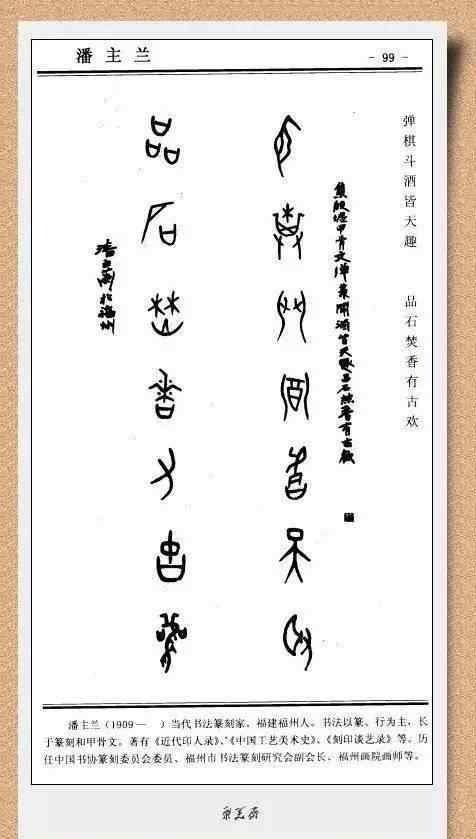 潘主兰
- 99 -
弹棋斗酒皆天趣 品石焚香有古欢
集殷墟甲骨文弹棊鬥酒皆天趣品石焚香有古歡
弹棋斗酒皆天趣
品石焚香有古欢
潘主蘭於福州
潘主兰(1909— )当代书法篆刻家、福建福州人。书法以篆、行为主，长
于篆刻和甲骨文。著有《近代印人录》、《中国工艺美术史》、《刻印谈艺录》等。历
任中国书协篆刻委员会委员、福州市书法篆刻研究会副会长、福州画院画师等。